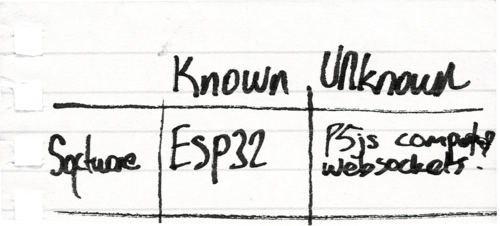 Known Unknown
Software ESP32 P5js computer
websockets.